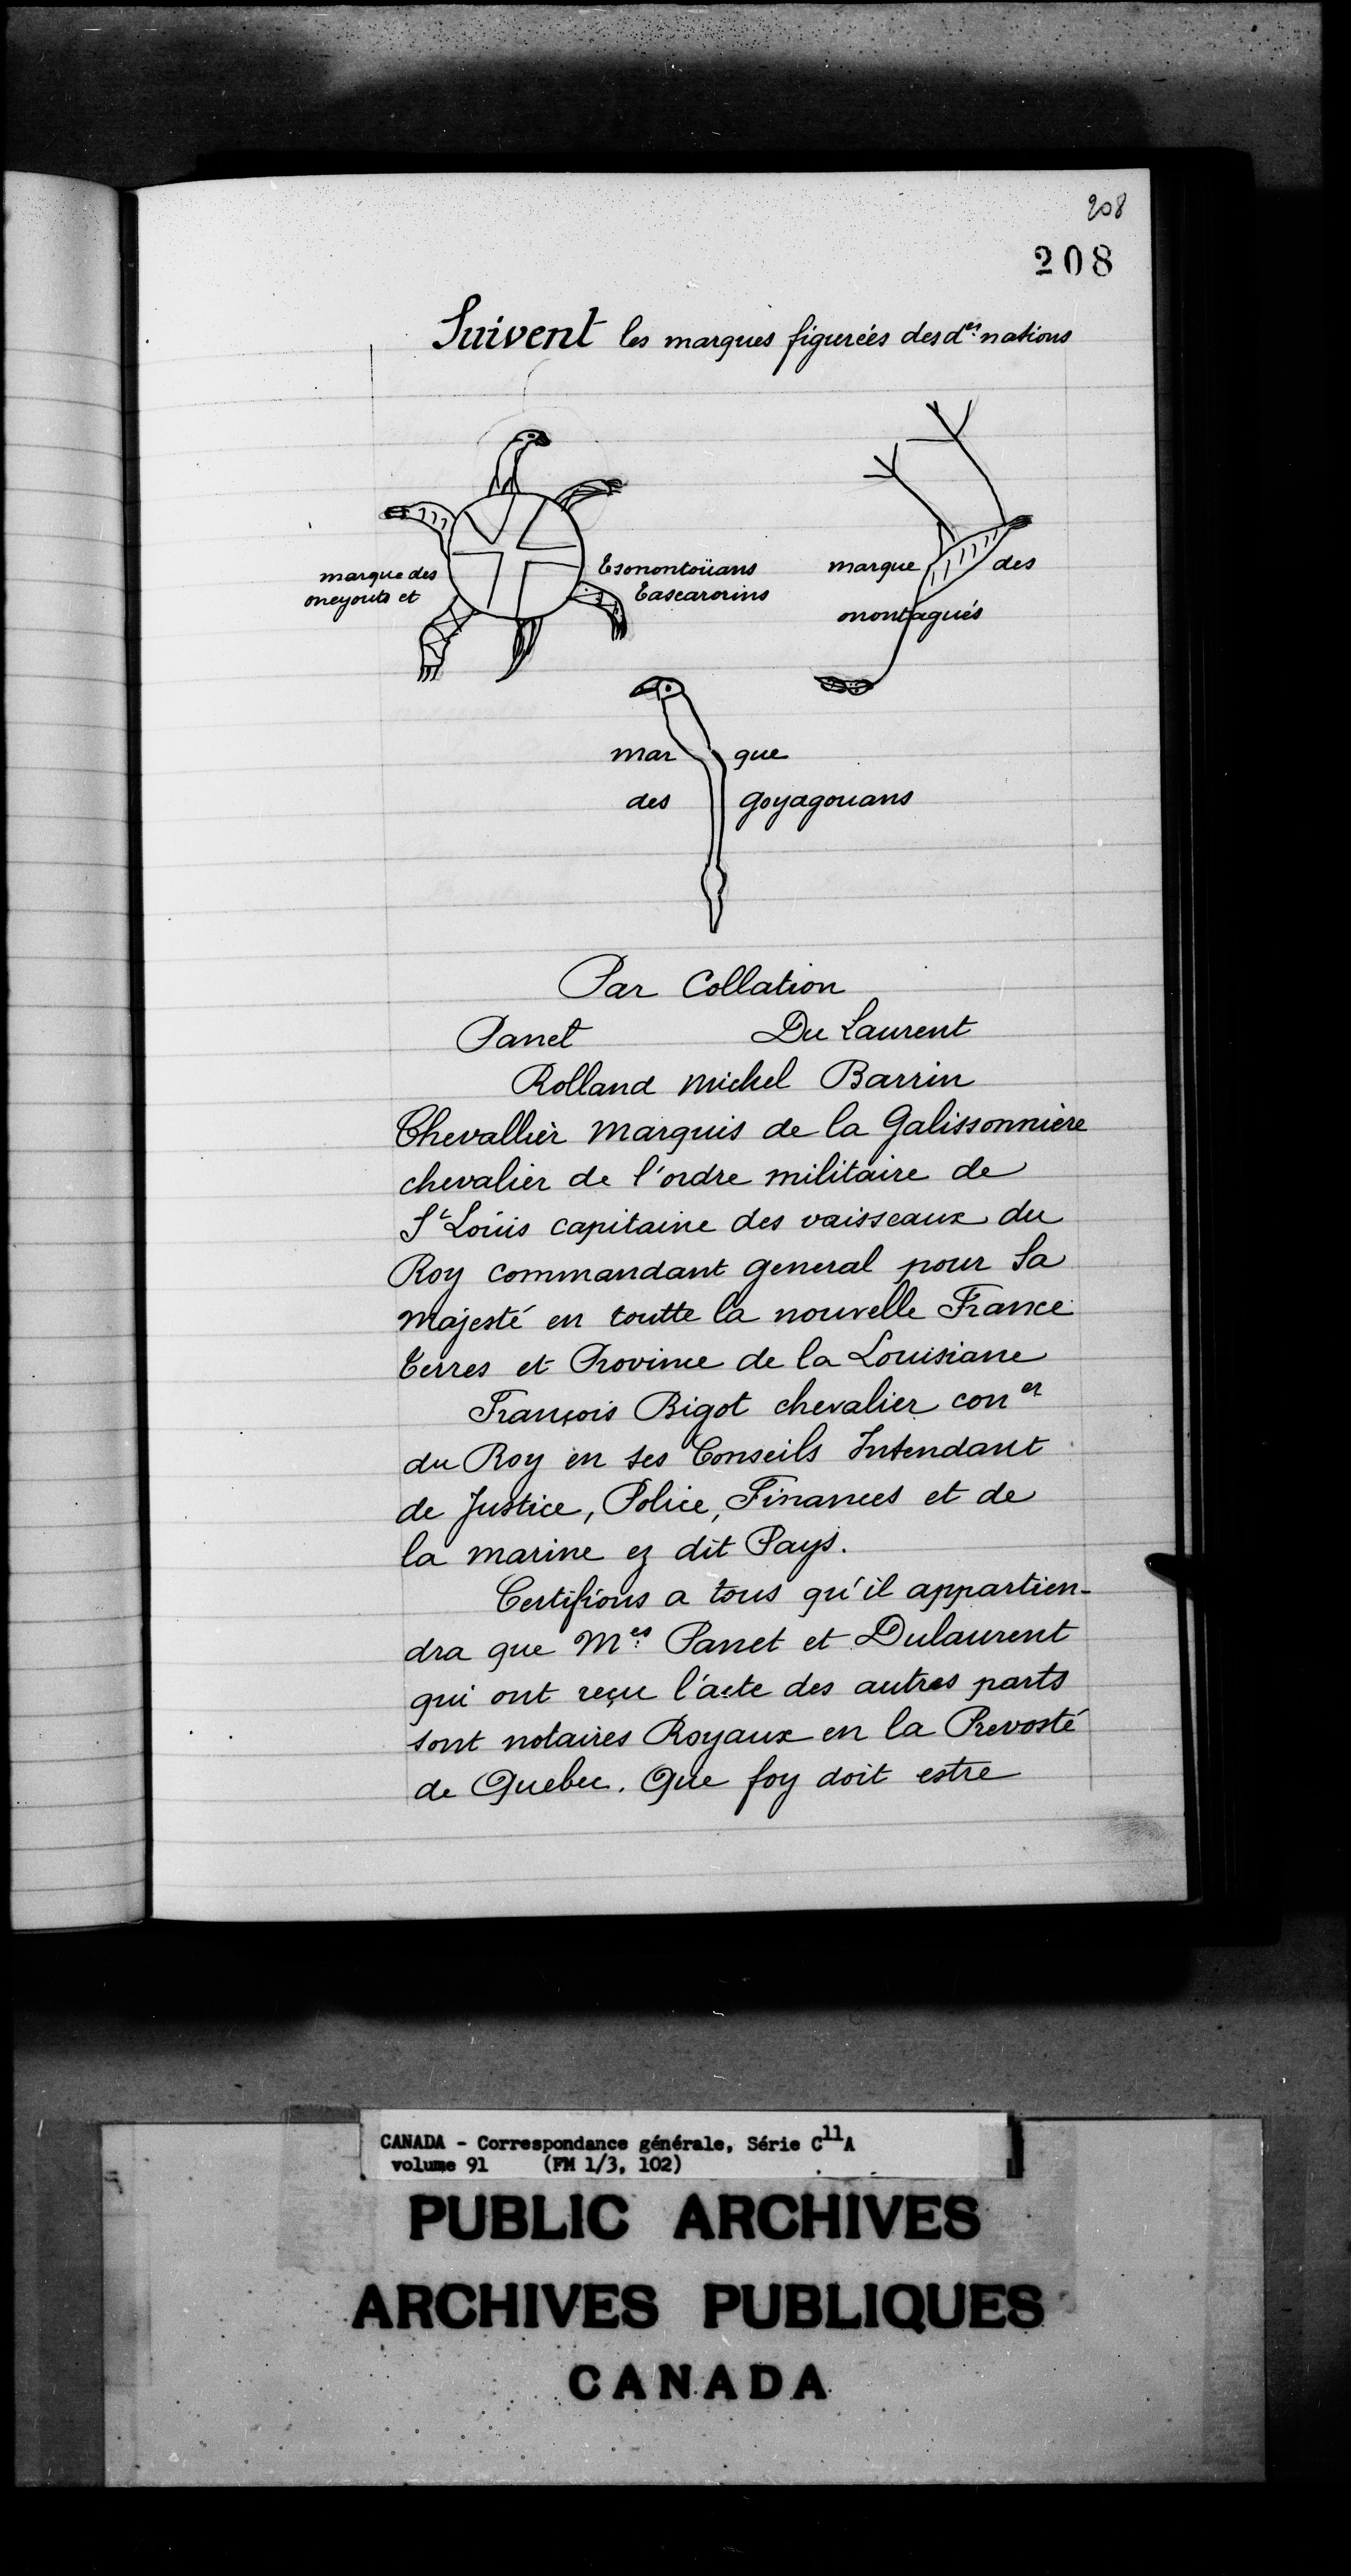 208
208
Suivent les marques figureés des d.es nations
marque des
oneyouts et
Tsonontoüans
Tascarorins
marque des
onontagués
mar que
des goyagouans
Par Collation
Panet Du Laurent
Rolland Michel Barrin
Chevallier Marquis de la Galissonnière
chevalier de l'ordre militaire de
St Louis capitaine des vaisseaux du
Roy commandant general pour Sa
Majesté en toutte la nouvelle France
terres et Province de la Louisiane
François Bigot chevalier coner
du Roy en ses Conseils Intendant
de Justice, Police, Finances et de
la marine ez dit Pays.
Certifions a tous qu'il appartien-
dra que M.es Panet et Dulaurent
qui ont reçu l'acte des autres parts
sont notaires Royaux en la Prevosté
de Quebec. Que foy doit estre
CANADA - Correspondance générale, Série C11A
volume 91 (FM 1/3, 102)
PUBLIC ARCHIVES
ARCHIVES PUBLIQUES
CANADA